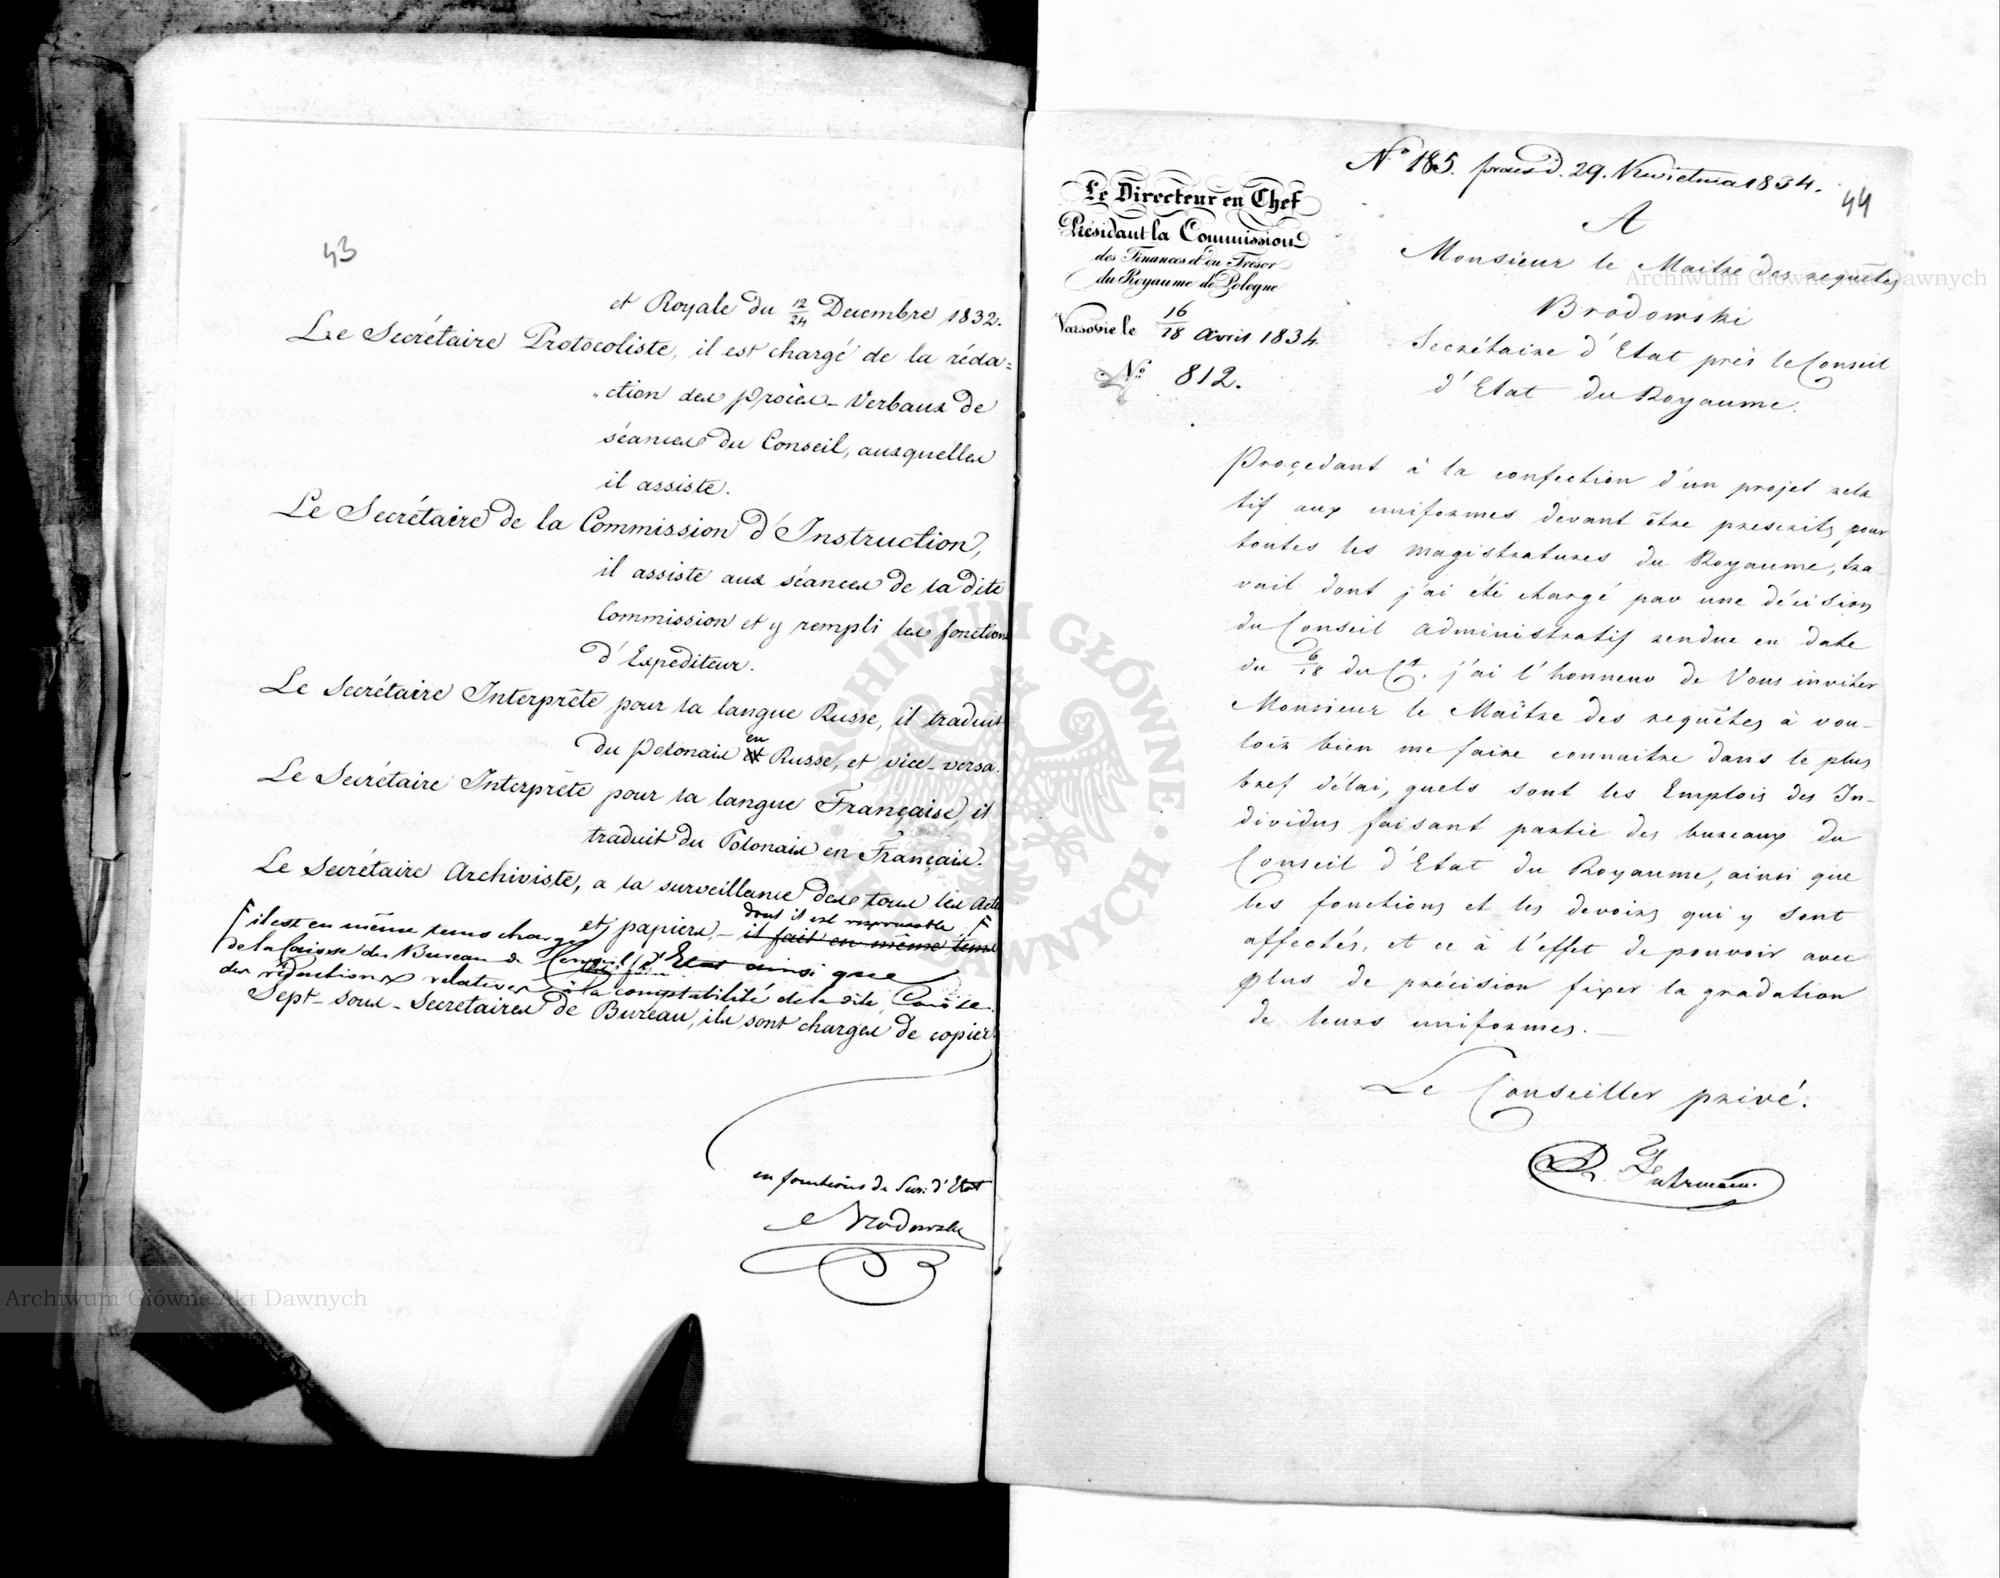 43
et Royale du 12/24 Decembre 1832.
Le Secrétaire Protocoliste, il est chargé de la réda=
ction des procès-Verbaux de
séances du Conseil, auxquelles
il assiste.
Le Secrétaire de la Commission d'Instruction,
il assiste aux séances de la dite
Commission et y rempli les fonctions
d'Expéditeur.
Le Secrétaire Interprête pour la langue Russe, il traduit
du polonais en Russe, et vice-versa.
Le Secrétaire Interprête pour la langue Française, il
traduit du Polonais en Français.
Le Secrétaire Archiviste, a la surveillance des tous les Actes
et papiers, dont il est responsable,
il fait en même tems
il est en même tems chargé
de la Caisse du Bureau du Conseil d'Etat ainsi que
des rédactions relatives à la comptabilité de la dite Caisse.
Sept-sous-Secretaires de Bureau, ils sont charges de copier
en fonctions de Secr. d'Etat
Brodowski
Nº 185. praes d. 29. Kwietnia 1834.
44
Le Directeur en Chef
Présidant la Commission
des Finances et du Trésor
du Royaume de Pologne
Varsovie le 16/28 Avril 1834.
Nº 812.
A
Monsieur le Maitre des requêtes
Brodowski
Secrétaire d'Etat près le Conseil
d'Etat du Royaume.
Proçedant à la confection d'un projet rela
tif aux uniformes devant être prescrits pour
toutes les magistratures du Royaume, tra-
vail dont j'ai été chargé par une décision
du Conseil Administratif rendue en date
du 6/18 du Ct. j'ai l'honneur de Vous inviter
Monsieur le Maître des requêtes à vou-
loir bien me faire connaitre dans le plus
bref délai, quels sont les Emplois des In-
dividus faisant partie des bureaux du
Conseil d'Etat du Royaume, ainsi que
les fonctions et les devoirs qui y sont
affectés, et ce à l'effet de pouvoir avec
plus de précision fixer la gradation
de leurs uniformes.
Le Conseiller privé.
R. Fuhrmann.
Archiwum Główne Akt Dawnych
ARCHIWUM GŁÓWNE AKT DAWNYCH
Archiwum Główne Akt Dawnych